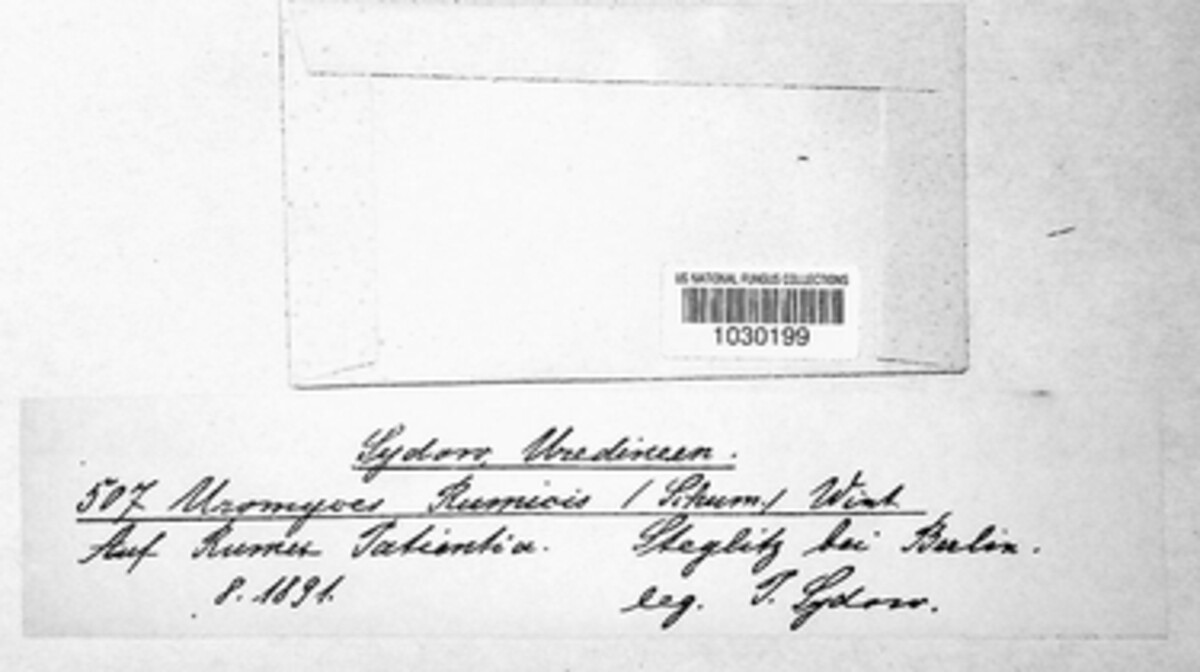 US NATIONAL FUNGUS COLLECTIONS
1030199
Sydow, Uredineen.
507 Uromyces Rumicis (Schum.) Wint
Auf Rumex Patientia. Steglitz bei Berlin.
8. 1891. leg. P. Sydow.